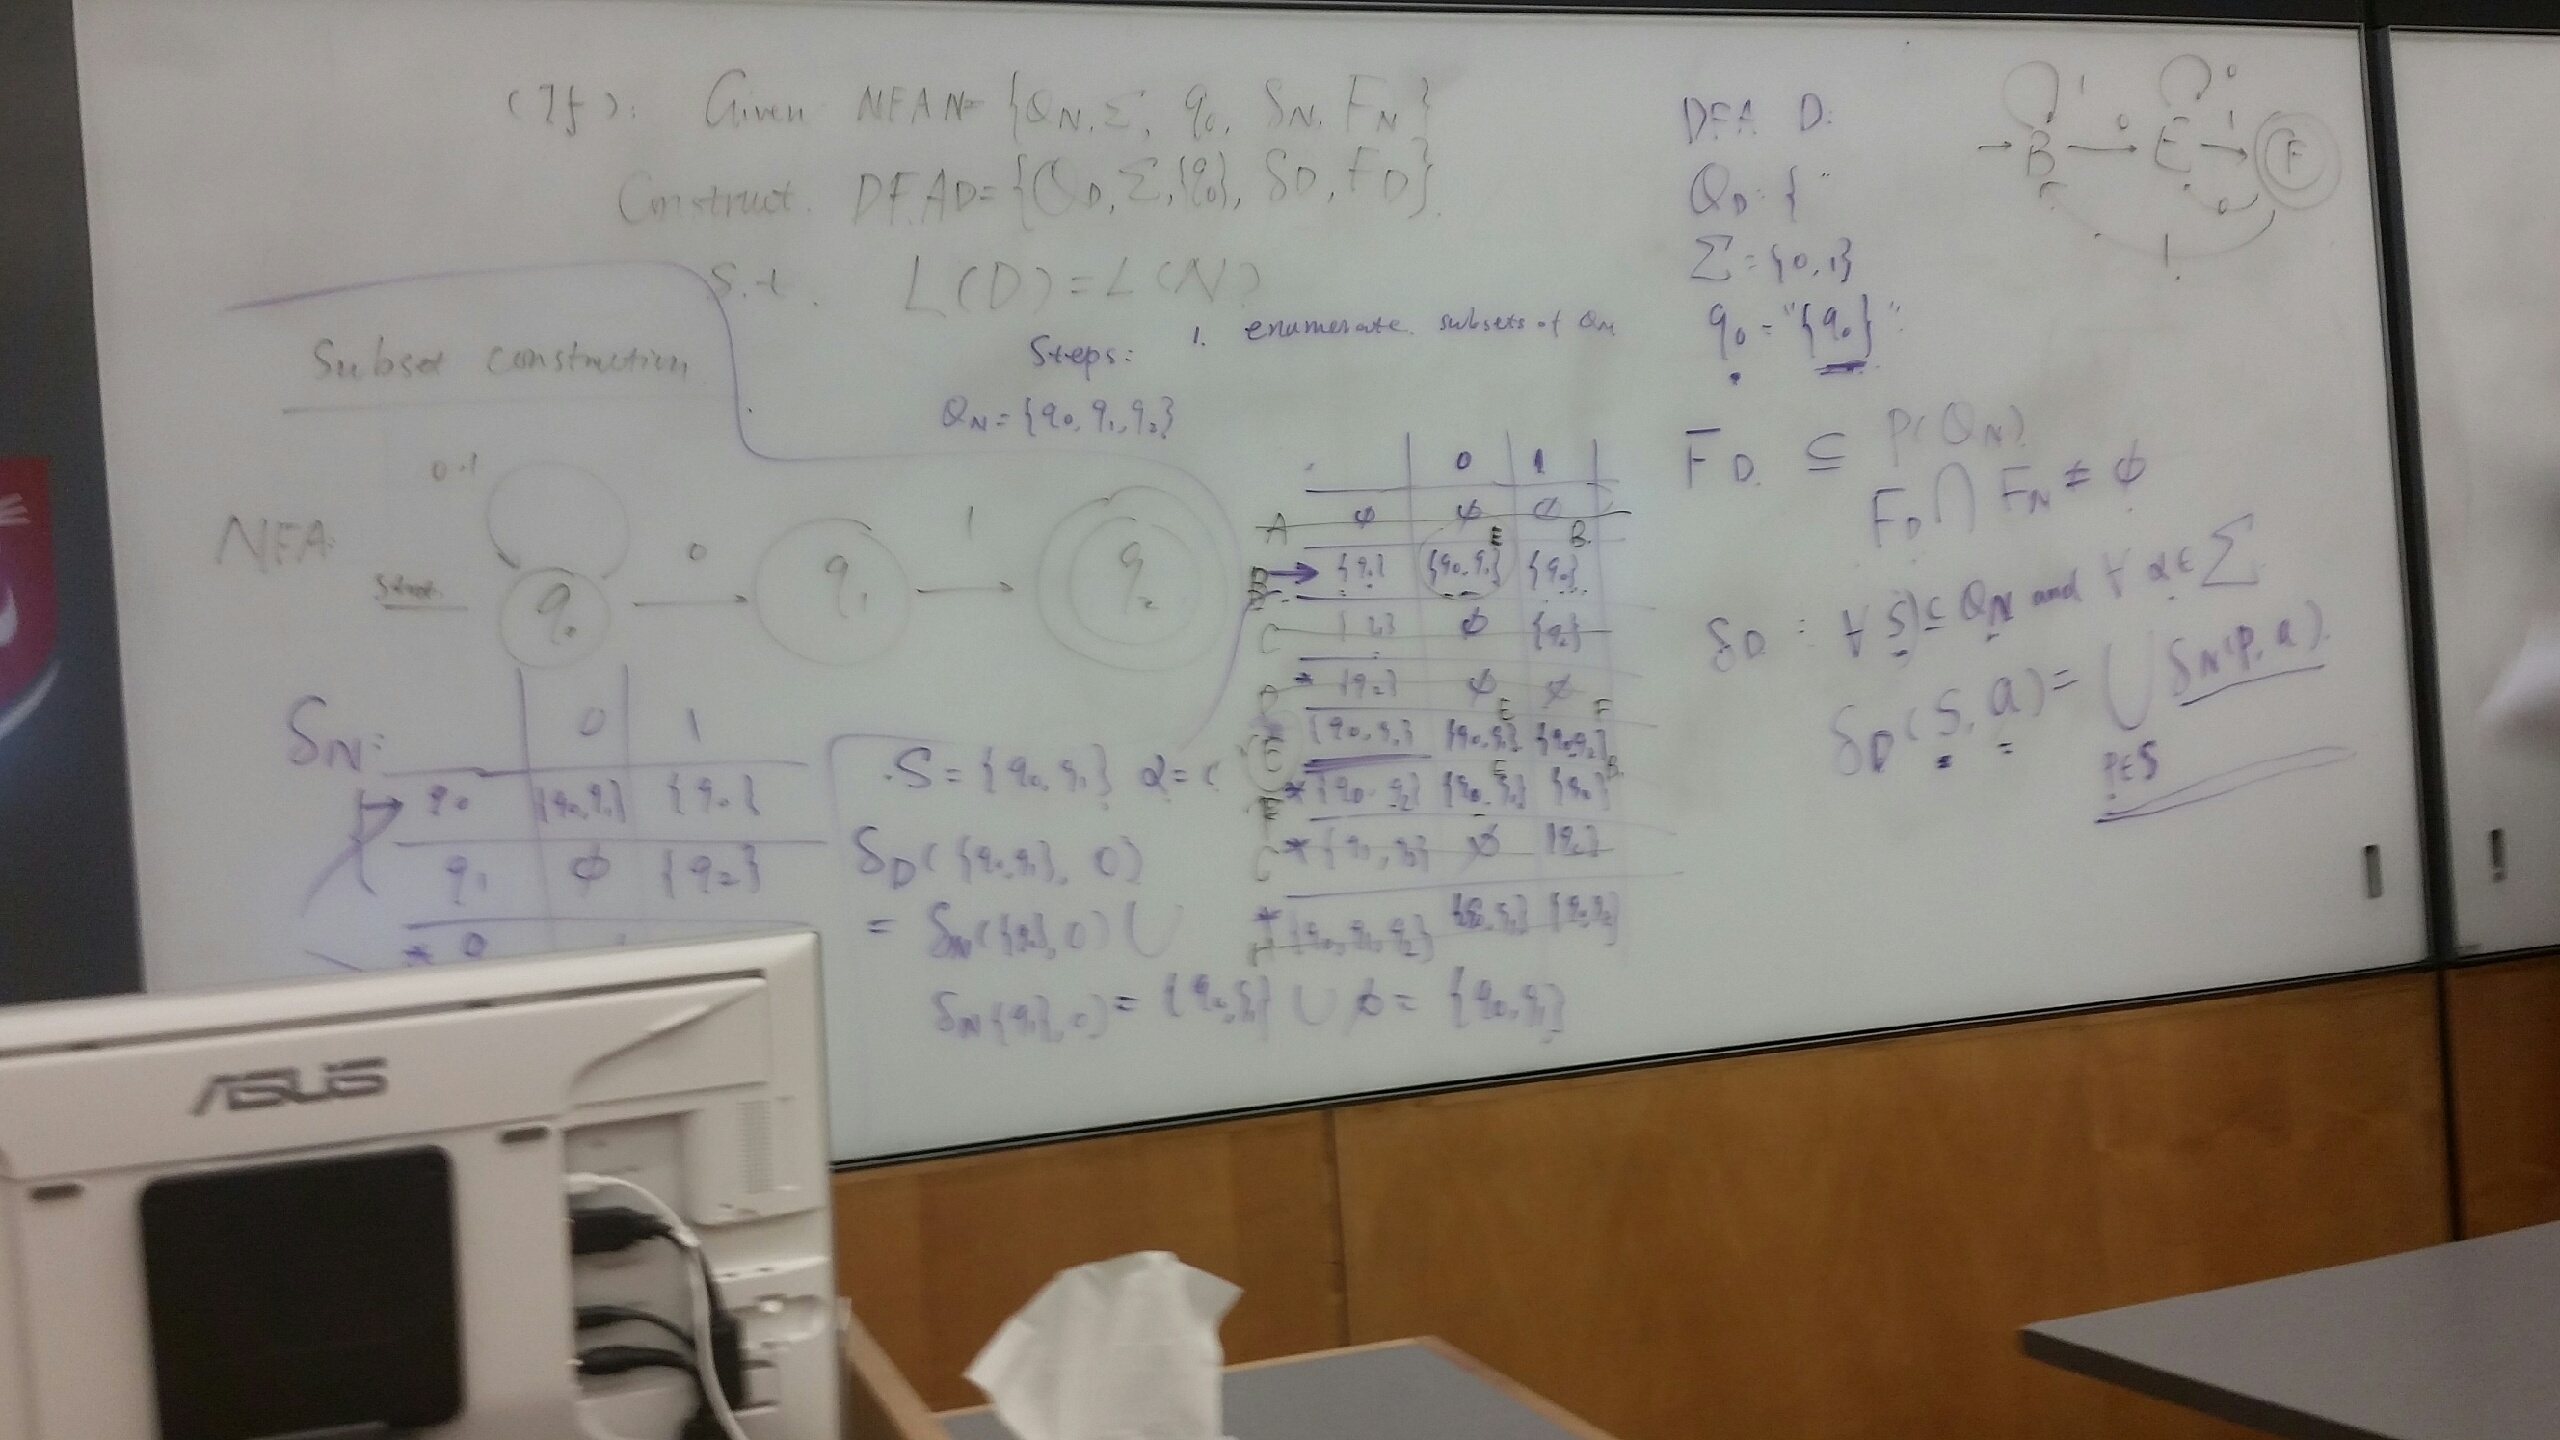 (If): Given NFA N= {QN, Σ, q0, δN, FN}
Construct DFA D= {QD, Σ, {q0}, δD, FD}.
S.t. L(D) = L(N)
Subset construction
Steps: 1. enumerate subsets of QN
QN = {q0, q1, q2}
NFA:
0.1
Start
q0
0
q1
1
q2
δN:
0 1
→ q0 {q0,q1} {q0}
q1 ϕ {q2}
* 
S = {q0, q1}
δD({q0,q1}, 0)
= δN({q0}, 0) ∪
δN({q1}, 0) = {q0,q1} ∪ ϕ = {q0,q1}
0 1
A ϕ ϕ ϕ
B → {q0} {q0,q1} E {q0} B
C ϕ {q2}
D * {q2} ϕ ϕ
E {q0,q1} {q0,q1} E {q0,q2} F
F * {q0,q2} {q0,q1} E {q0} B
* {q1,q2} ϕ {q2}
* {q0,q1,q2} {q0,q1} {q0,q2}
DFA D:
QD: {
Σ = {0,1}
q0 = "{q0}"
FD ⊆ P(QN)
FD ∩ FN ≠ ϕ
δD : ∀ S ⊆ QN and ∀ a ∈ Σ
δD(S, a) = ∪ δN(P, a).
P∈S
1
0
→ B
0
E
1
F
0
1
ASUS